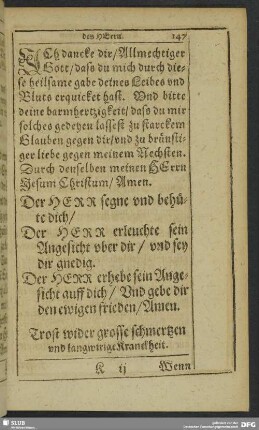 des HErrn. 147
ICh dancke dir/Allmechtiger
Gott/dass du mich durch die-
se heilsame gabe deines Leibes vnd
Bluts erquicket hast. Vnd bitte
deine barmhertzigkeit/dass du mir
solches gedeyen lassest zu starckem
Glauben gegen dir/vnd zu brünsti-
ger liebe gegen meinem Nechsten.
Durch denselben meinen HErrn
Jesum Christum/Amen.
Der HERR segne vnd behü-
te dich/
Der HERR erleuchte sein
Angesicht vber dir/ vnd sey
dir gnedig.
Der HERR erhebe sein Ange-
sicht auff dich/ Vnd gebe dir
den ewigen frieden/Amen.
Trost wider grosse schmertzen
vnd langwirige Kranckheit.
K ij Wenn
SLUB
DFG